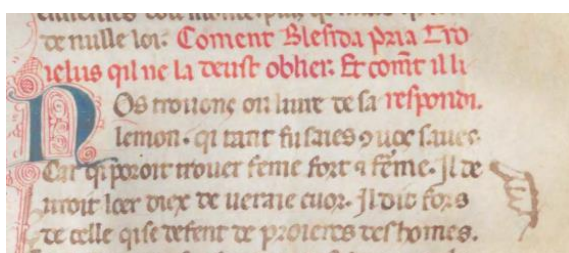 de nulle loi. Coment Blesida pria Tro
ielus qil ne la deust oblier. Et comt il li
NOs trouons ou liure de sa respondi.
lemon. qi tant fu saies
Car qi poroit trouer feme fort a feme. Il de
uroit loer diex de ueraie cuor. Il dit fors
de celle qi se defent de proieres des homes.